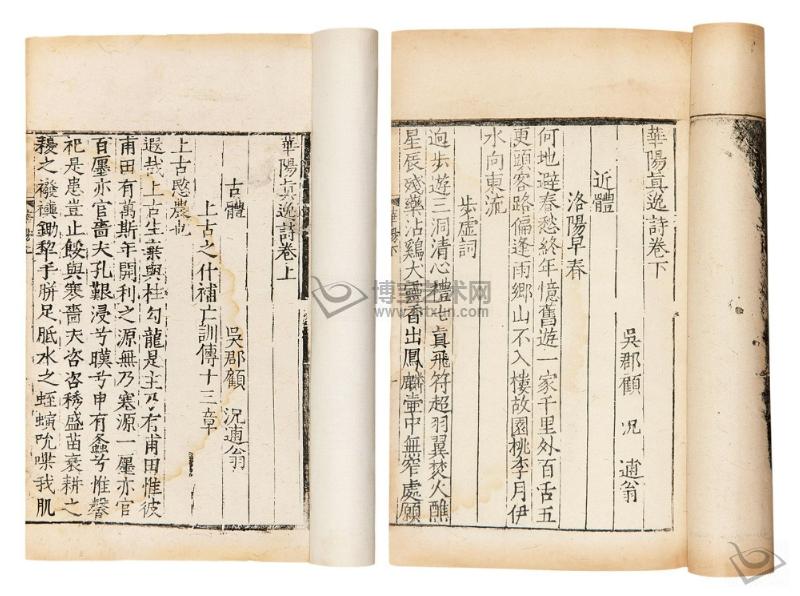 華陽真逸詩卷上
吳郡顧　況逋翁
古體
上古之什補亡訓傳十三章
上古愍農也
遐哉上古生棄與柱句龍是主乃有甫田惟彼
甫田有萬斯年開利之源無乃塞源一廛亦官
百廛亦官嗇夫孔艱浸兮暵兮申有螽兮惟馨
祀是患豈止餒與寒嗇夫咨咨䅎盛苗衰耕之
耰之襏襫鋤犂手胼足胝水之蛭螾吮喋我肌
華陽真逸詩卷下
吳郡顧　况　逋翁
近體
洛陽早春
何地避春愁終年憶舊遊一家千里外百舌五
更頭客路偏逢雨鄉山不入樓故園桃李月伊
水向東流
步虛詞
迥步遊三洞清心禮七真飛符超羽翼焚火醮
星辰殘藥沾鷄犬靈香出鳳麟壺中無窄處願
博宝艺术网